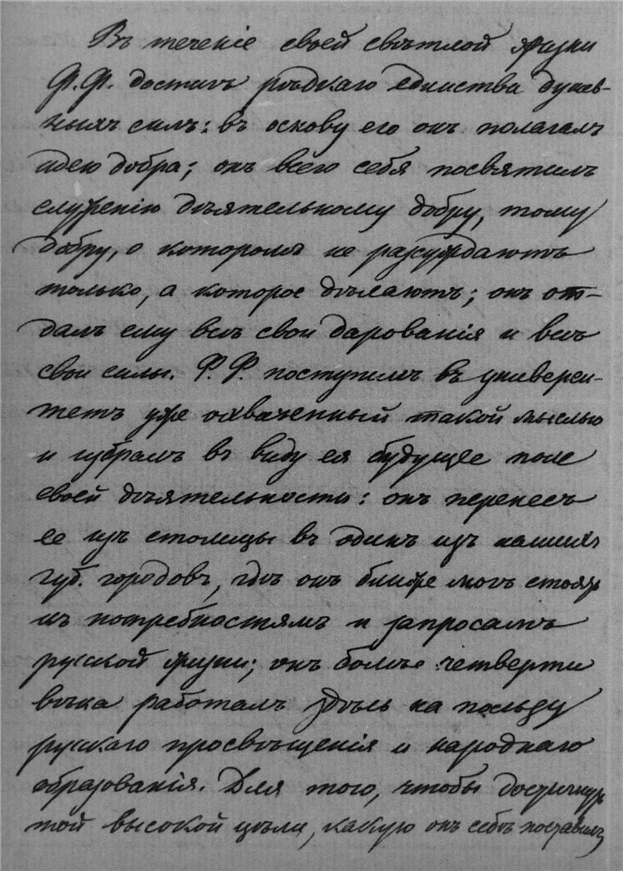 Въ теченіе своей свѣтлой жизни
Ф.Ф. достигъ рѣдкаго единства душев-
ныхъ силъ: въ основу его онъ полагалъ
идею добра; онъ всего себя посвятилъ
служенію дѣятельному добру, тому
добру, о которомъ не разсуждаютъ
только, а которое дѣлаютъ; онъ от-
далъ ему всѣ свои дарованія и всѣ
свои силы. Ф. Ф. поступилъ въ универси-
тетъ уже охваченный такой мыслью
и избралъ въ виду ея будущее поле
своей дѣятельности: онъ перенесъ
ее изъ столицы въ одинъ изъ нашихъ
губ. городовъ, гдѣ онъ ближе могъ стоять
къ потребностямъ и запросамъ
русской жизни; онъ болѣе четверти
вѣка работалъ здѣсь на пользу
русскаго просвѣщенія и народнаго
образованія. Для того, чтобы достигнуть
той высокой цѣли, какую онъ себѣ поставилъ,